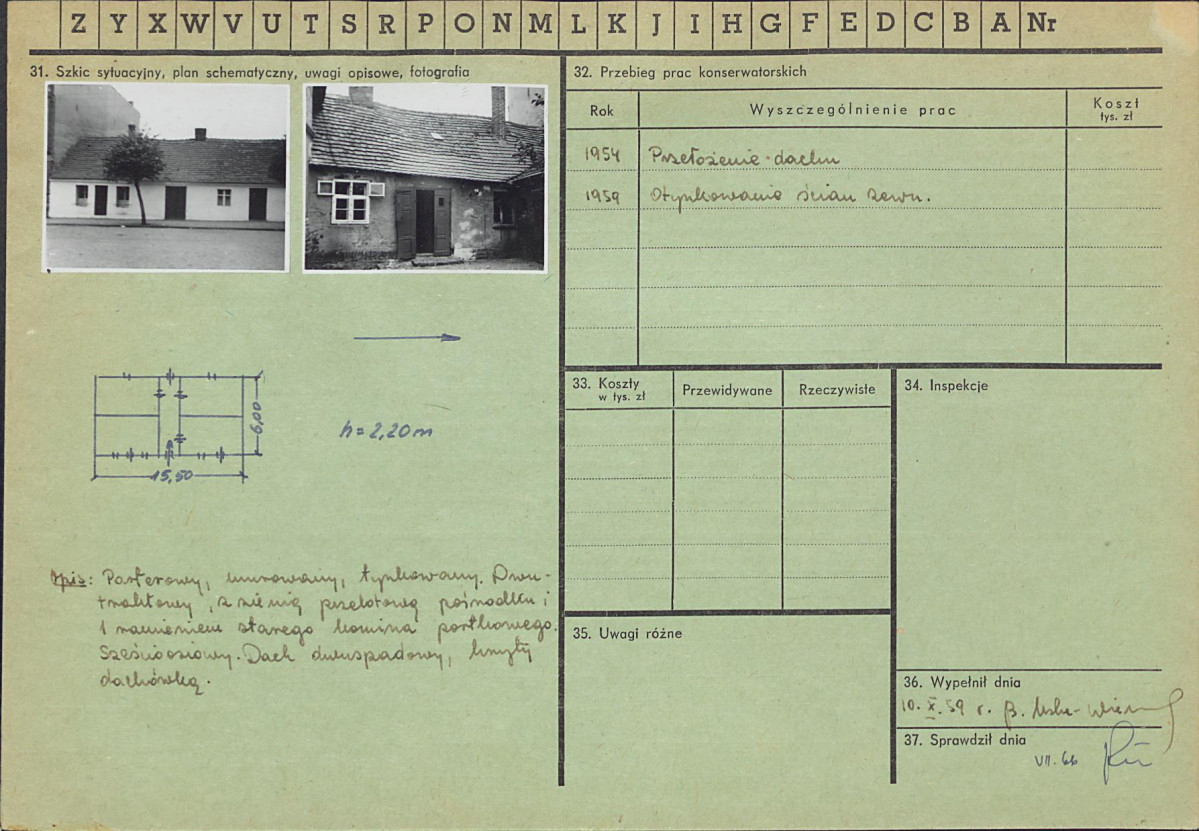 Z Y X W V U T S R P O N M L K J I H G F E D C B A Nr
31. Szkic sytuacyjny, plan schematyczny, uwagi opisowe, fotografia
15,50
6,00
h = 2,20 m
Opis: Parterowy, murowany, tynkowany. Dwu-
traktowy, z sienią przelotową pośrodku i
1 ramieniem starego komina
Sześcioosiowy. Dach dwuspadowy, kryty
dachówką.
32. Przebieg prac konserwatorskich
Rok Wyszczególnienie prac Koszt tys. zł
1954 Przełożenie dachu
1959 Otynkowanie ścian zewn.
33. Koszty w tys. zł Przewidywane Rzeczywiste
34. Inspekcje
35. Uwagi różne
36. Wypełnił dnia
10. X. 59 r. B.
37. Sprawdził dnia
VII. 66